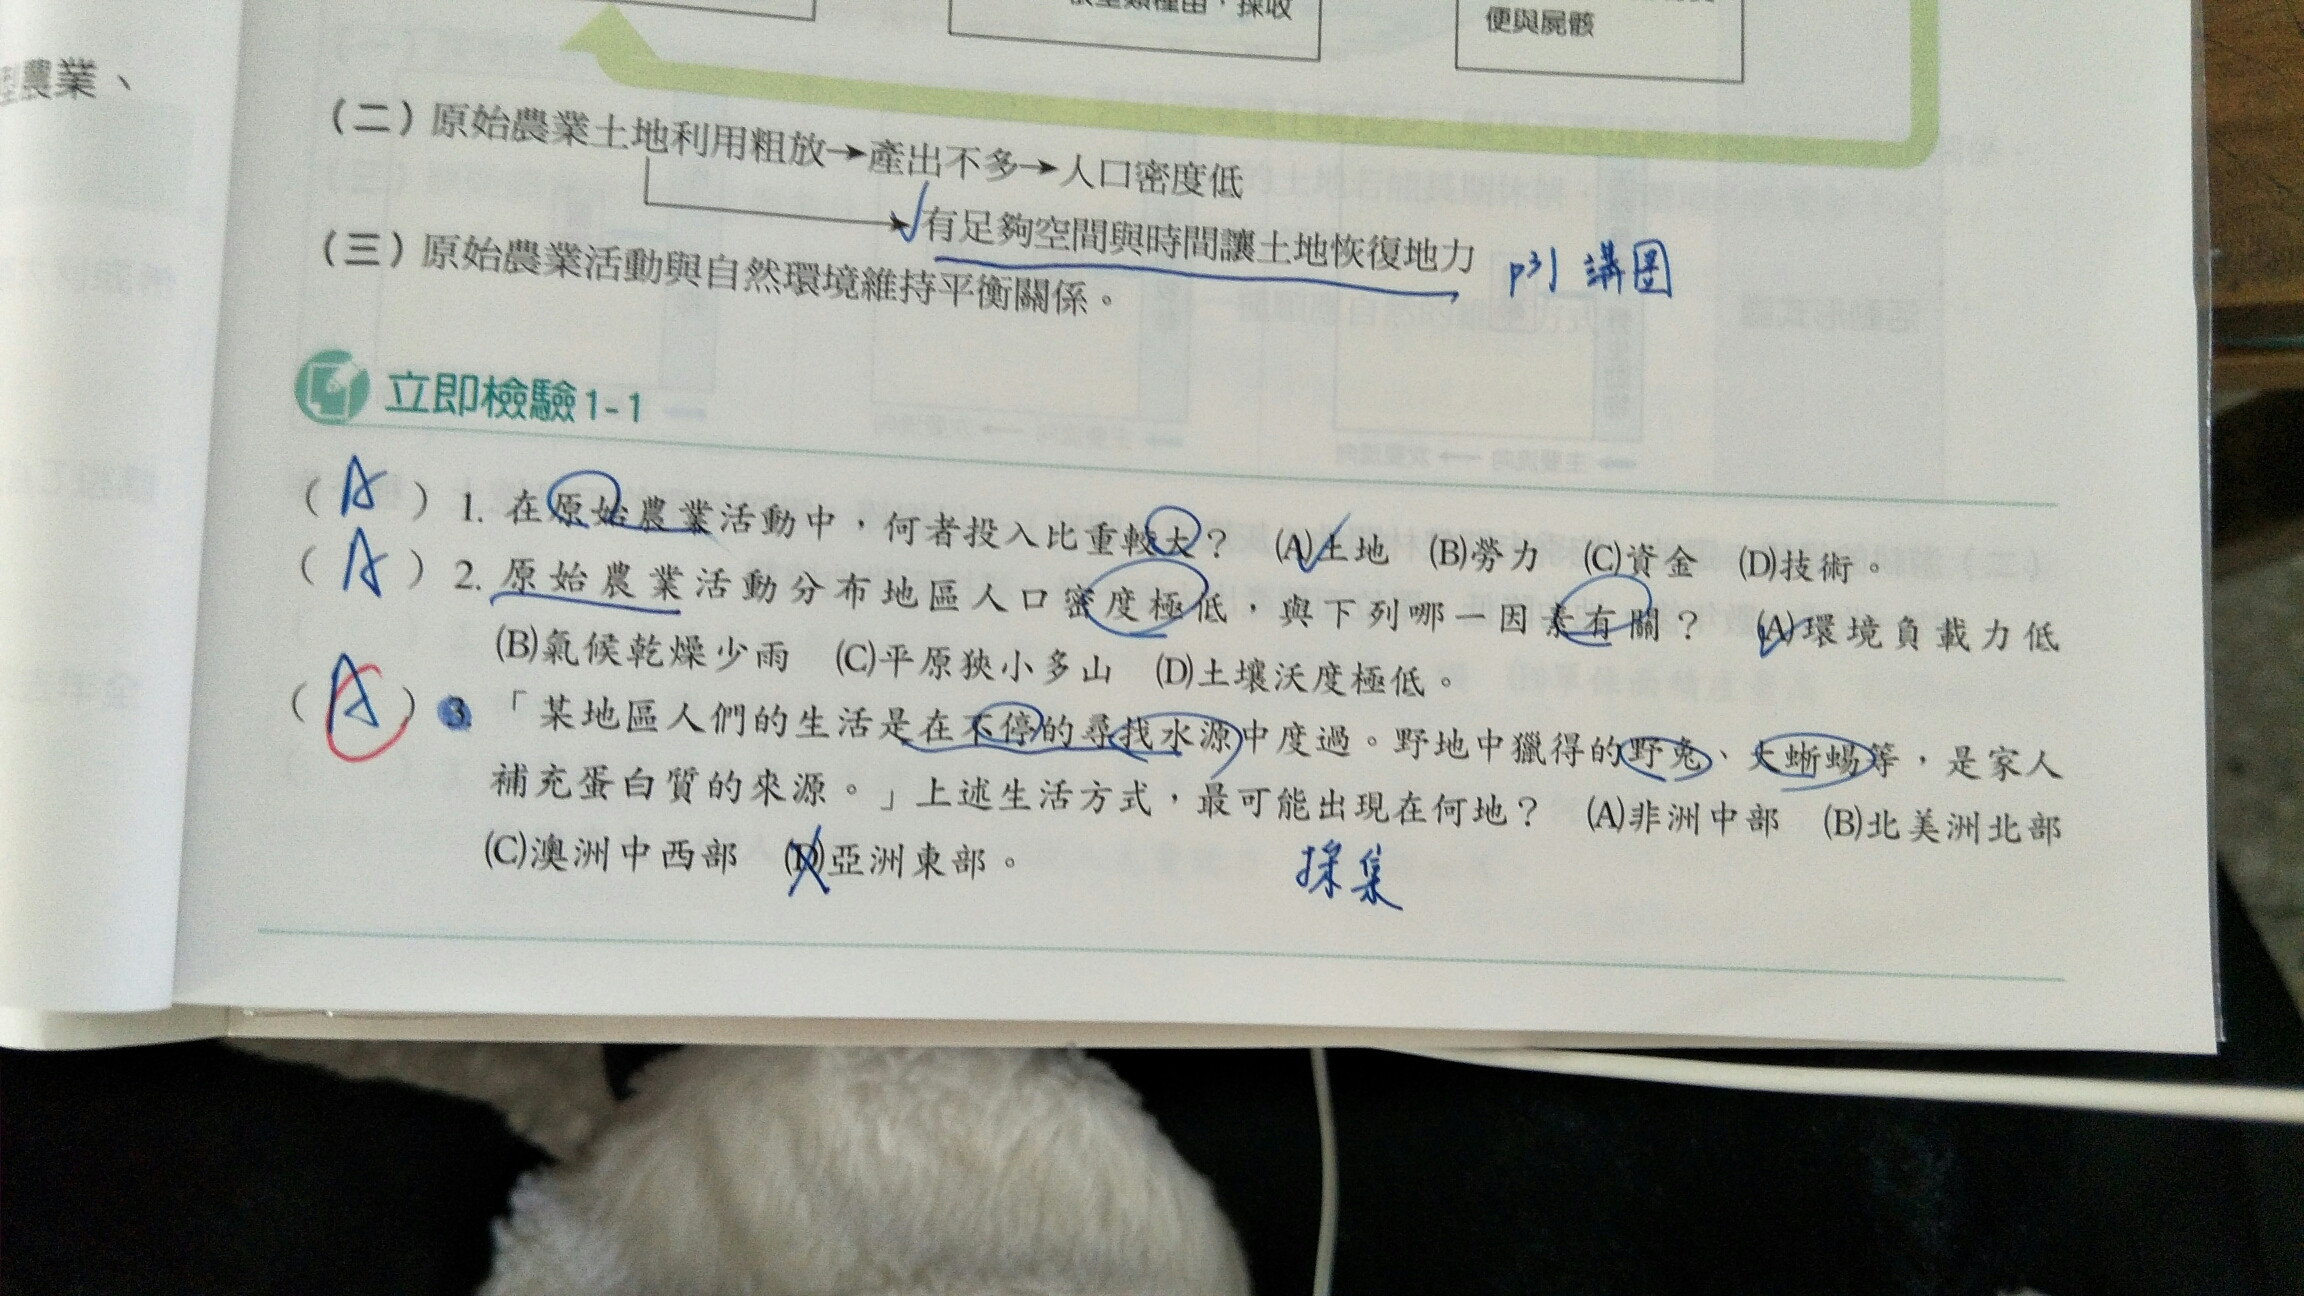 便與屍骸
農業、
(二)原始農業土地利用粗放→產出不多→人口密度低
有足夠空間與時間讓土地恢復地力
p31 講圖
(三)原始農業活動與自然環境維持平衡關係。
立即檢驗1-1
(A)1. 在原始農業活動中,何者投入比重較大? (A)土地 (B)勞力 (C)資金 (D)技術。
(A)2. 原始農業活動分布地區人口密度極低,與下列哪一因素有關? (A)環境負載力低
(B)氣候乾燥少雨 (C)平原狹小多山 (D)土壤沃度極低。
(A)3.「某地區人們的生活是在不停的尋找水源中度過。野地中獵得的野兔、大蜥蜴等,是家人
補充蛋白質的來源。」上述生活方式,最可能出現在何地? (A)非洲中部 (B)北美洲北部
(C)澳洲中西部 (D)亞洲東部。
採集